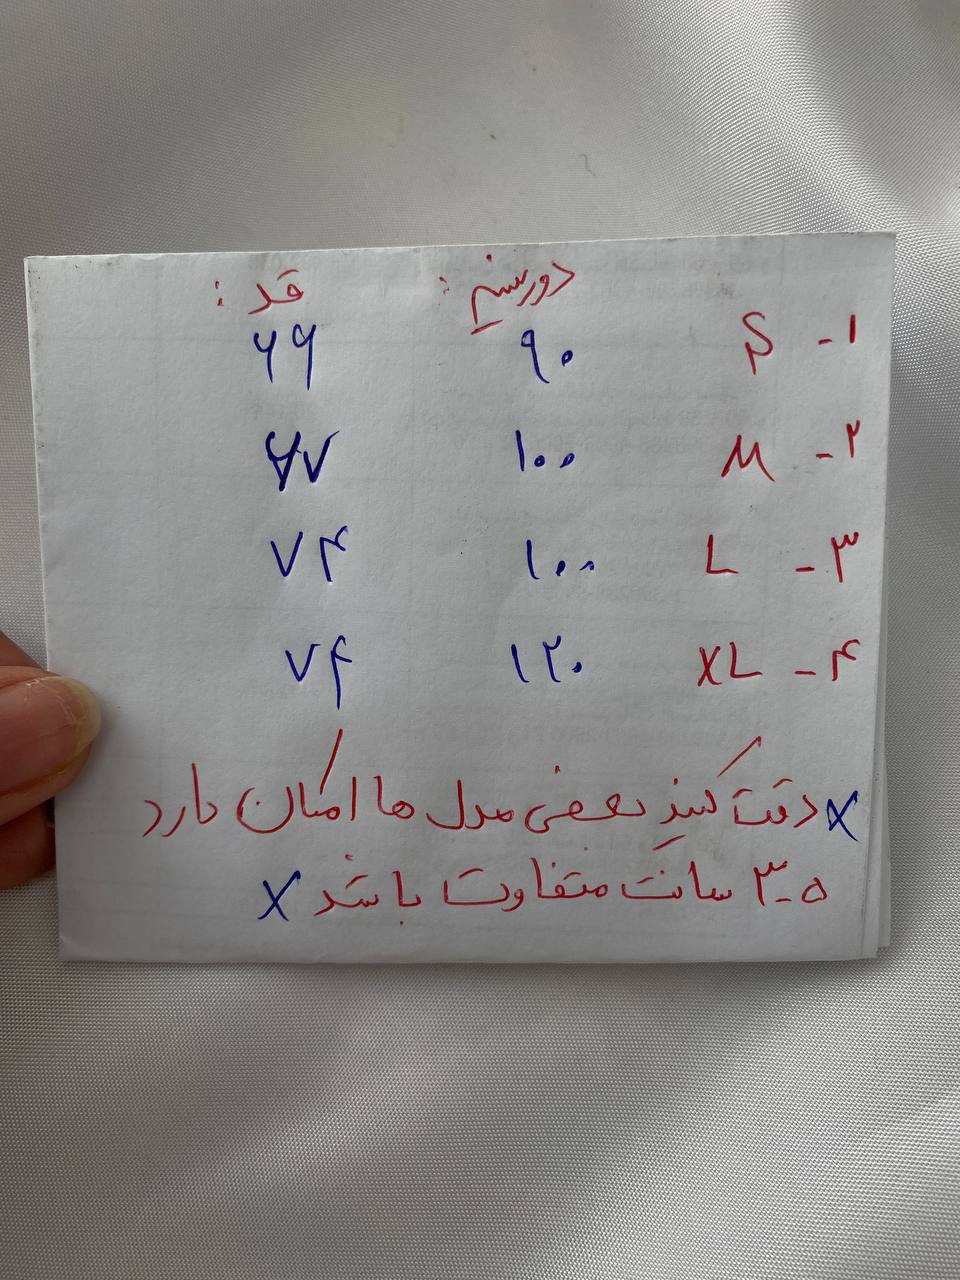 دور سینه : قد :
۱- S ۹۰ ۶۹
۲- M ۱۰۰
۳- L ۱۰۰ ۷۴
۴- XL ۱۲۰ ۷۴
× دقت کنید بعضی مدل ها امکان دارد
۳-۵ سانت متفاوت باشد ×